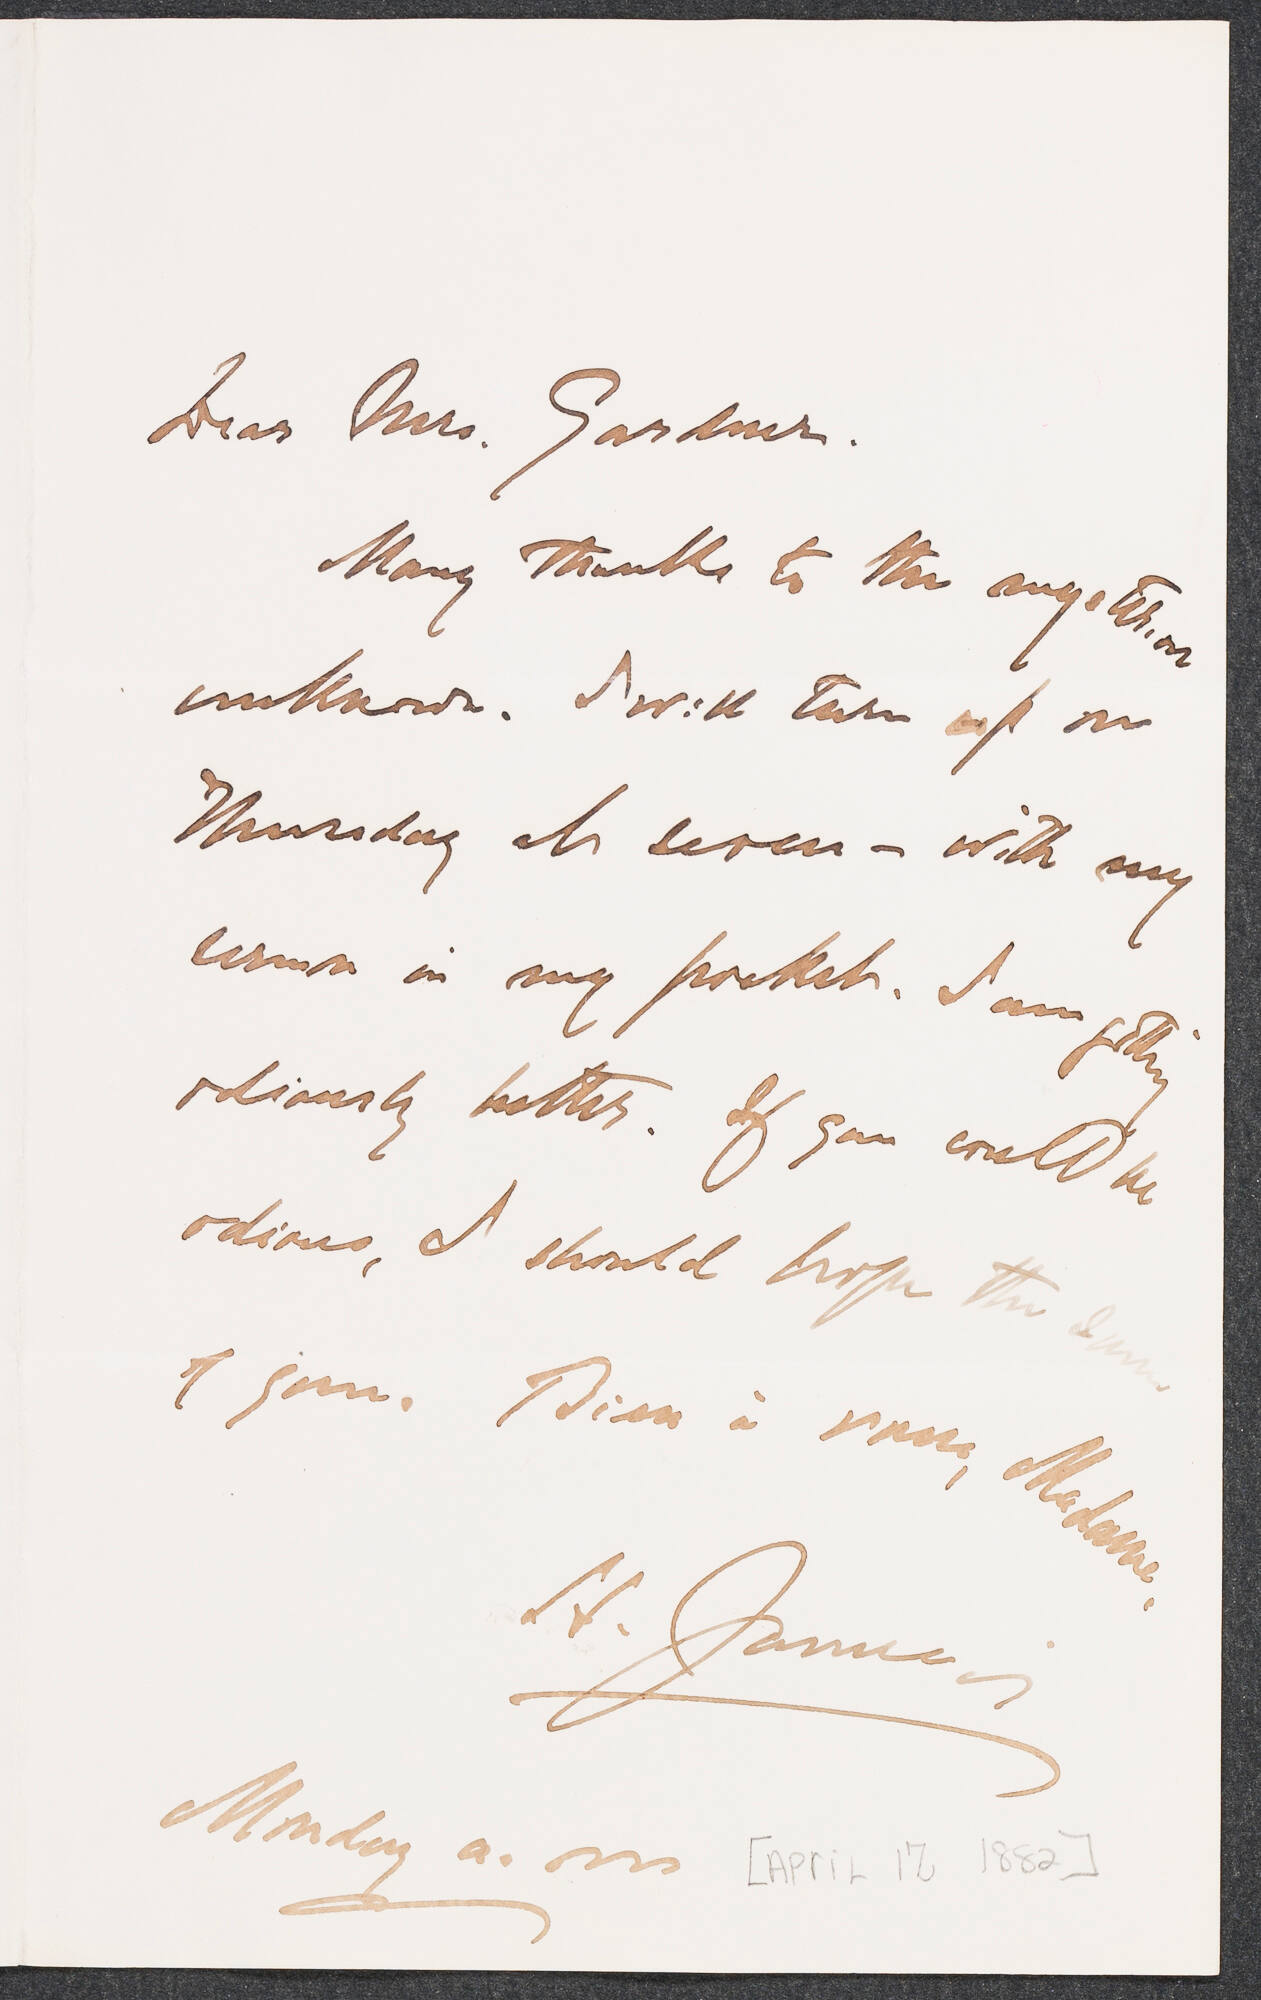 Dear Mrs. Gardner.
Many thanks to the mysterious
unknown. I will turn up on
Thursday at seven — with my
sermon in my pocket. I am getting
odiously better. If you could be
odious, I should hope the same
of you. Bien à vous, Madame.
H. James jr
Monday a. m
[APRIL 17 1882]